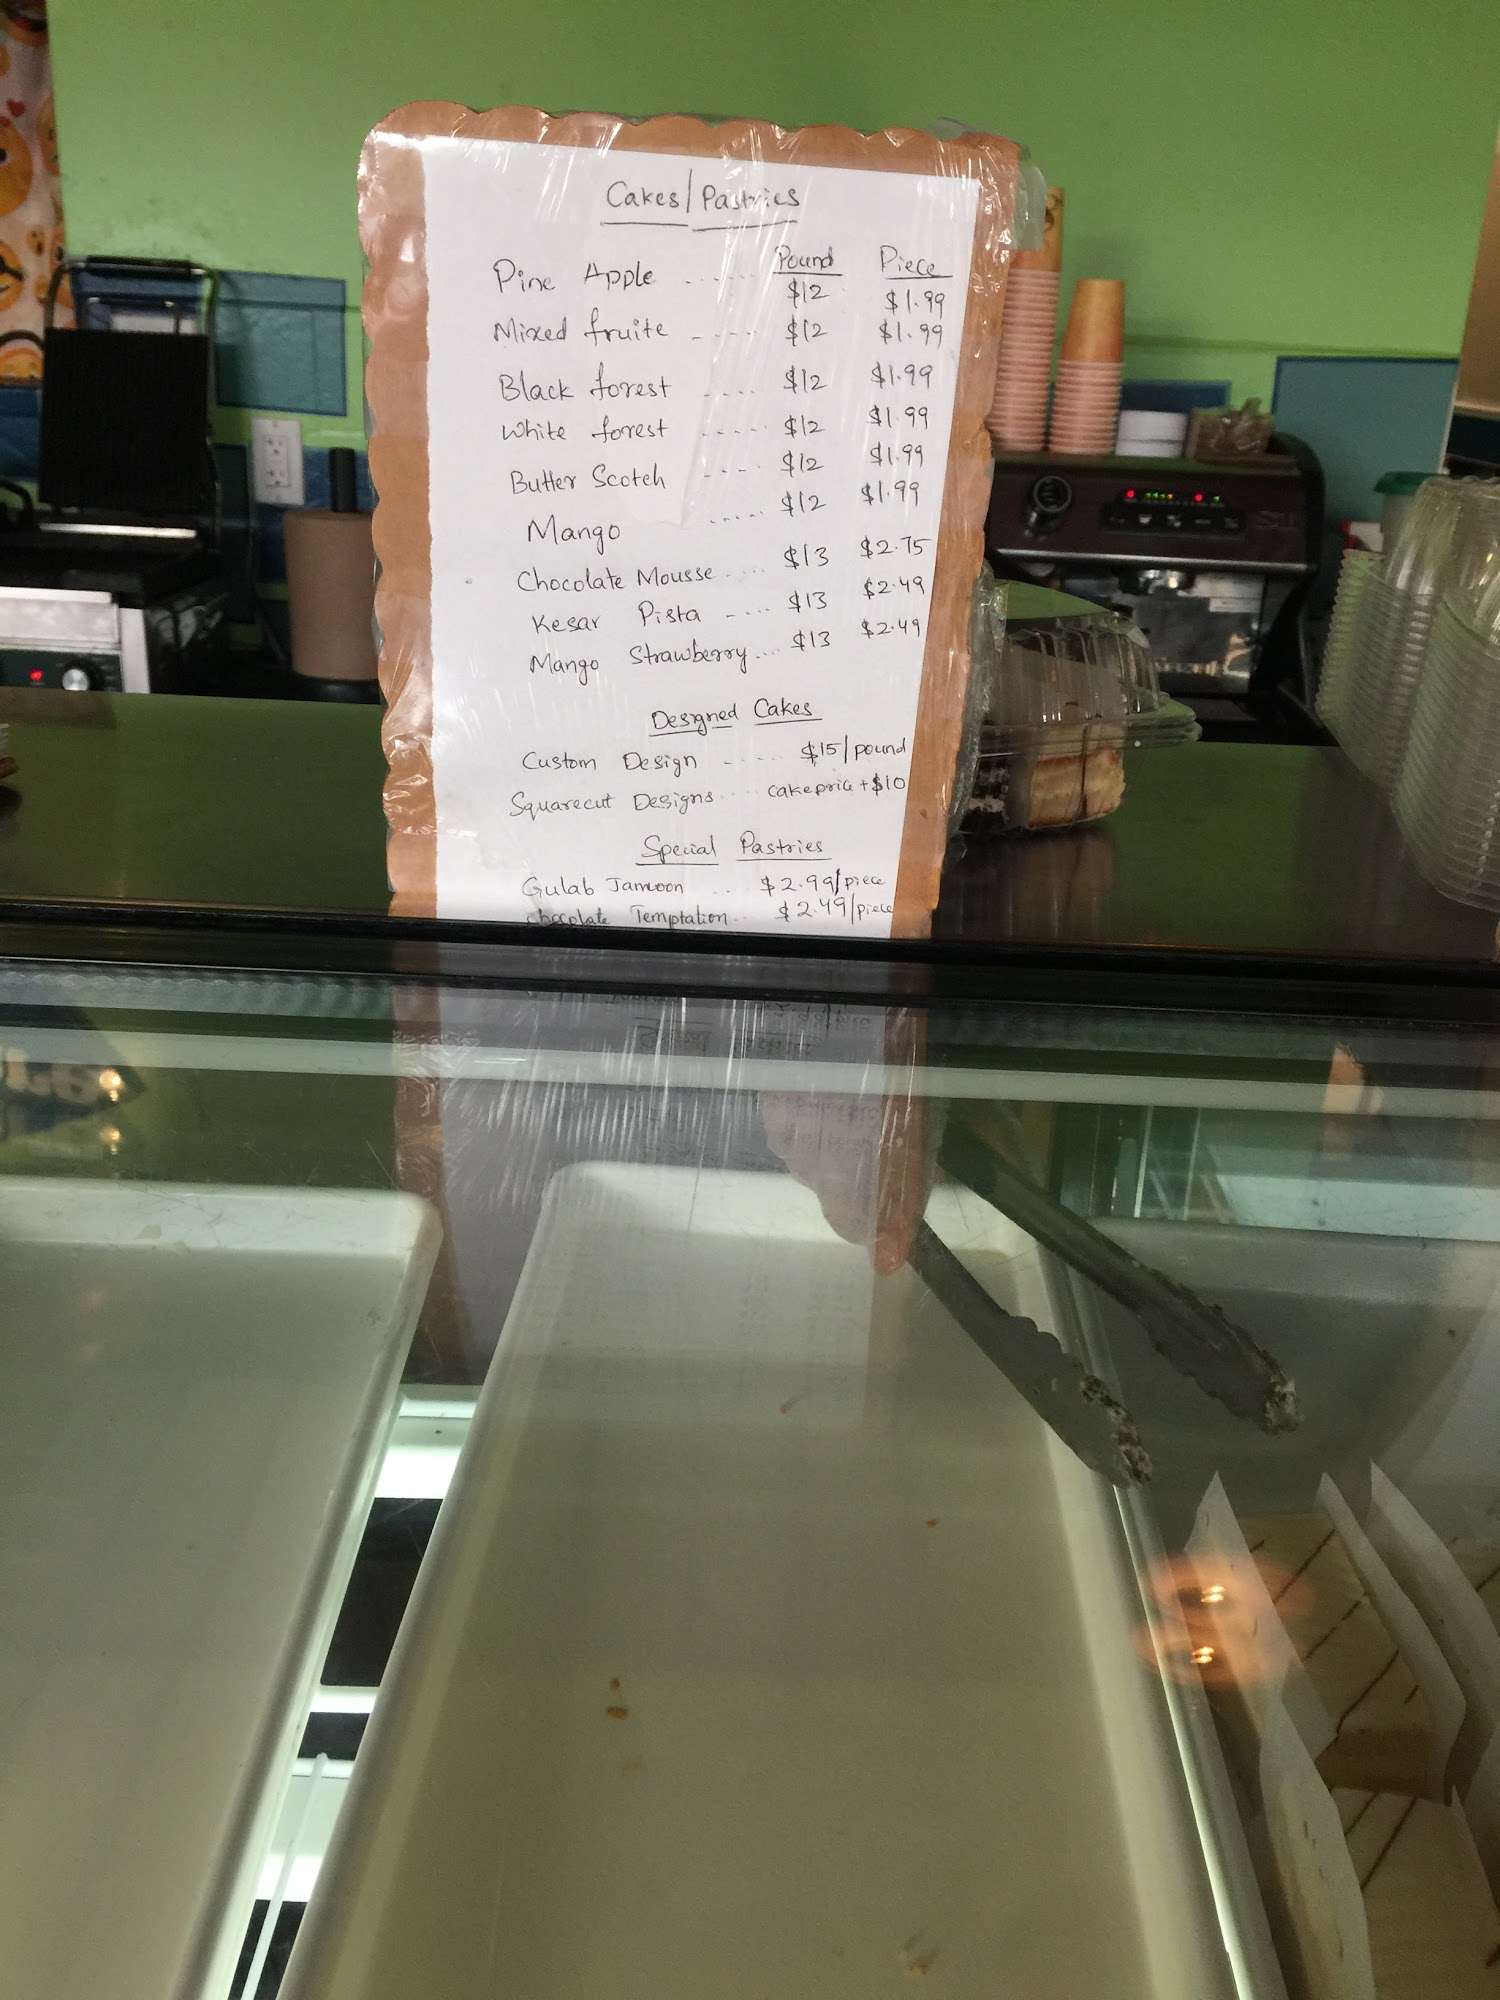 Cakes/Pastries
Pound Piece
Pine Apple ...... $12 $1.99
Mixed fruite ..... $12 $1.99
Black forest .... $12 $1.99
White forest ..... $12 $1.99
Butter Scotch .... $12 $1.99
Mango ..... $12 $1.99
Chocolate Mousse .... $13 $2.75
Kesar Pista ..... $13 $2.49
Mango Strawberry.... $13 $2.49
Designed Cakes
Custom Design ..... $15/pound
Squarecut Designs.... cakeprice + $10
Special Pastries
Gulab Jamoon .. $2.99/piece
Chocolate Temptation.. $2.49/piece